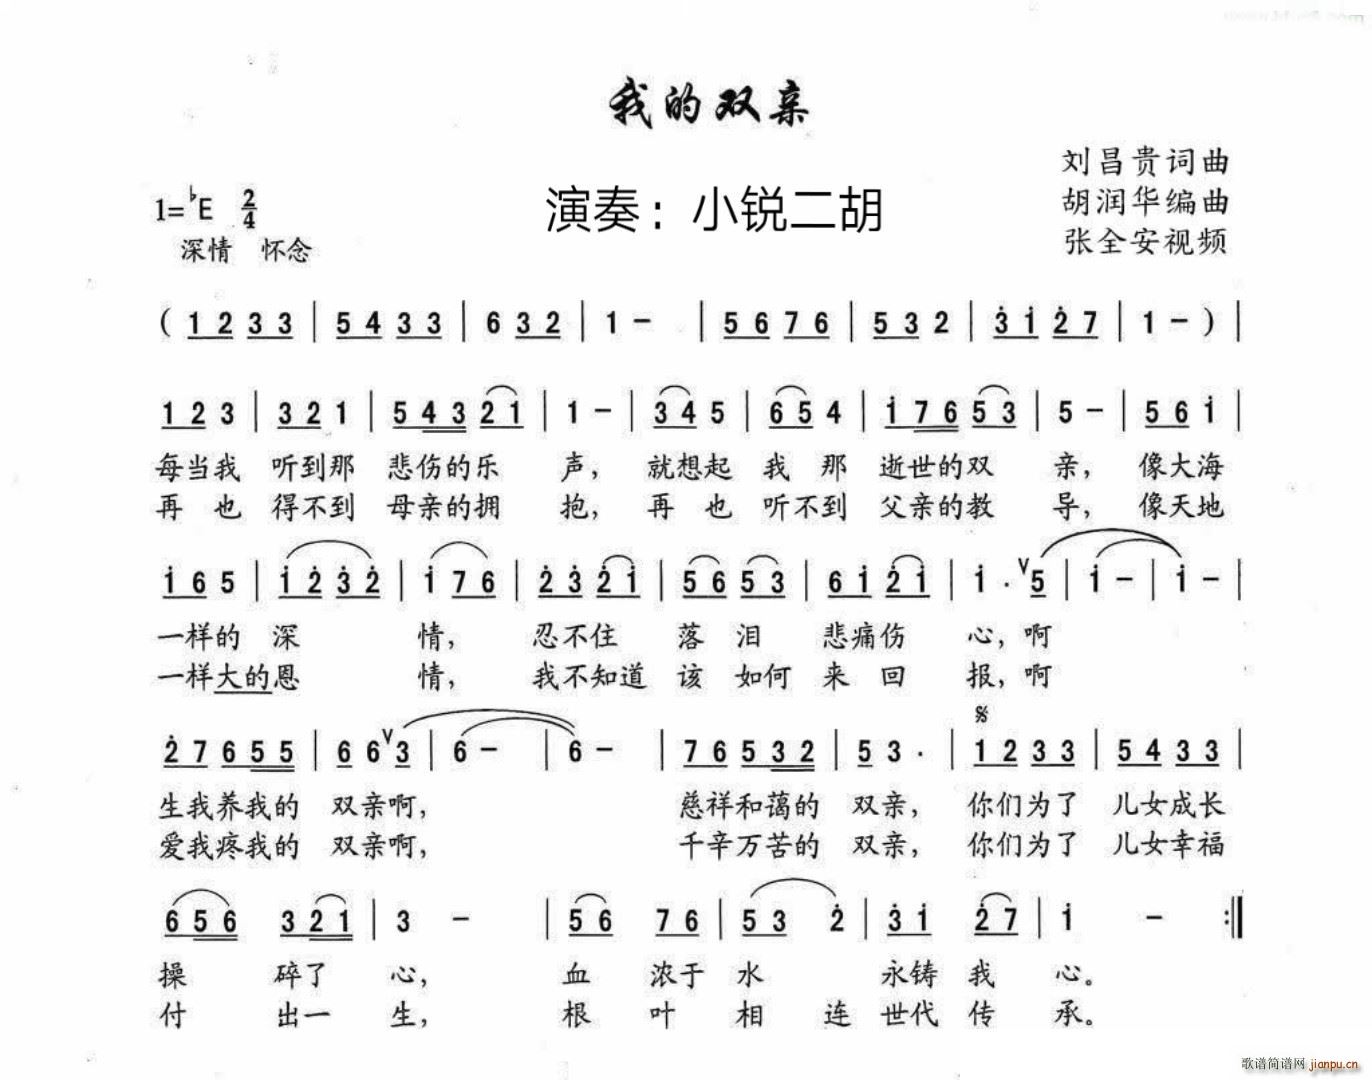 我的双亲
刘昌贵词曲
1=♭E 2/4 演奏：小锐二胡 胡润华编曲
深情 怀念 张全安视频
( 1 2 3 3 | 5 4 3 3 | 6 3 2 | 1 − | 5 6 7 6 | 5 3 2 | 3̇ 1̇ 2̇ 7 | 1 − ) |
1 2 3 | 3 2 1 | 5 4 3 2 1 | 1 − | 3 4 5 | 6 5 4 | 1̇ 7 6 5 3 | 5 − | 5 6 1̇ |
每当我 听到那 悲伤的乐 声， 就想起 我 那 逝世的双 亲， 像大海
再 也 得不到 母亲的拥 抱， 再 也 听不到 父亲的教 导， 像天地
1̇ 6 5 | 1̇ 2̇ 3̇ 2̇ | 1̇ 7 6 | 2̇ 3̇ 2̇ 1̇ | 5 6 5 3 | 6 1̇ 2̇ 1̇ | 1̇ · ∨ 5 | 1̇ − | 1̇ − |
一样的 深 情， 忍不住 落 泪 悲痛伤 心，啊
一样大的恩 情， 我不知道 该 如何 来 回 报，啊
𝄋
2̇ 7 6 5 5 | 6 6 ∨ 3 | 6 − | 6 − | 7 6 5 3 2 | 5 3 · | 1 2 3 3 | 5 4 3 3 |
生我养我的 双亲啊， 慈祥和蔼的 双亲， 你们为了 儿女成长
爱我疼我的 双亲啊， 千辛万苦的 双亲， 你们为了 儿女幸福
6 5 6 3 2 1 | 3 − | 5 6 7 6 | 5 3 2̇ | 3̇ 1̇ 2̇ 7 | 1̇ − :‖
操 碎了 心， 血 浓于 水 永铸 我 心。
付 出一 生， 根 叶 相 连 世代 传 承。
歌谱简谱网 jianpu.cn